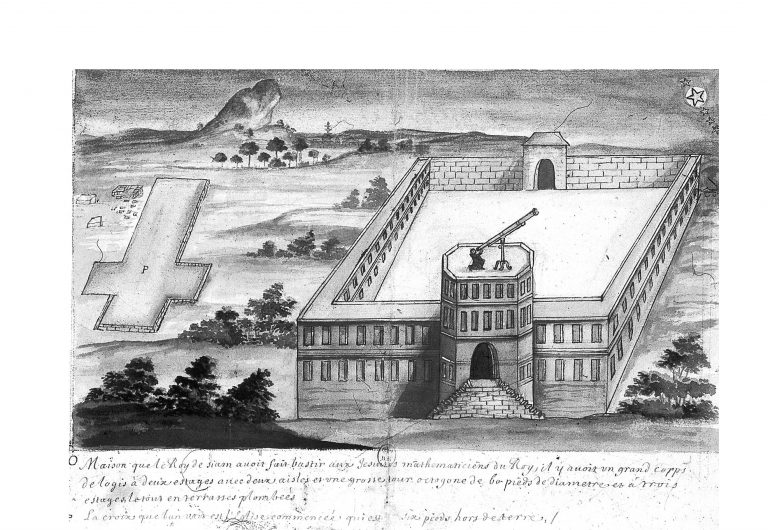 P
Maison que le Roy de siam avoit fait bastir aux Jesuites mathematiciens du Roy, il y avoit un grand corps
de logis à deux estages avec deux aisles et une grosse tour octogone de 60 pieds de diametre et à trois
estages le tout en terrasses plombées
La croix que l'on voit est l'Eglise commencée, qui est six pieds hors de terre,